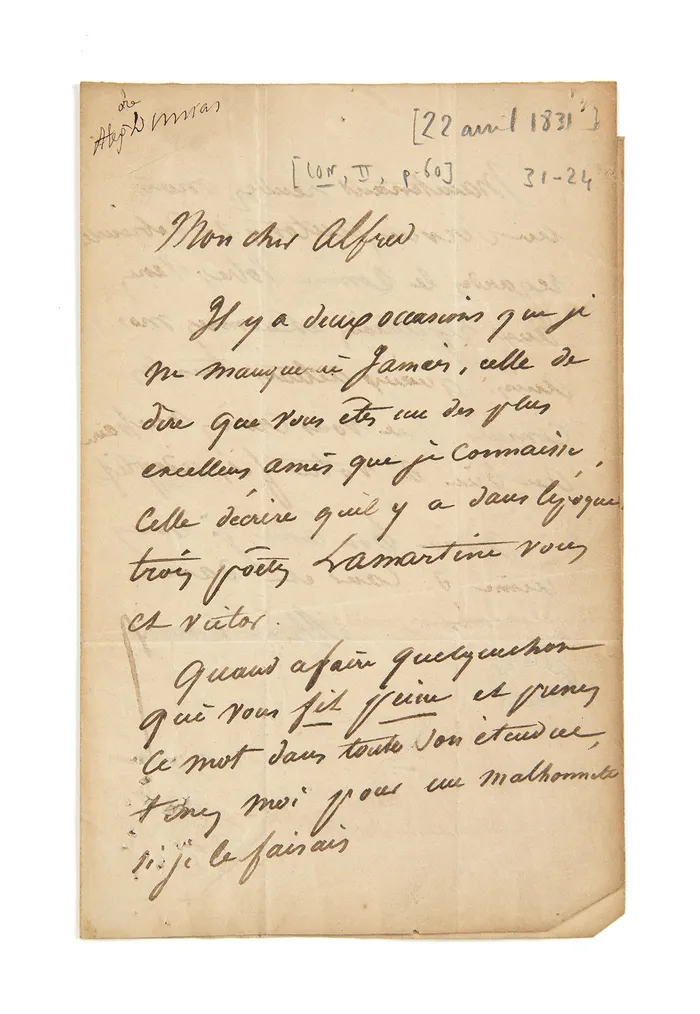 Alex^dre Dumas
[22 avril 1831]
[COR, II, p. 60]
31-24
Mon cher Alfred
Il y a deux occasions que je
ne manquerai Jamais, celle de
dire que vous êtes un des plus
excellens amis que je Connaisse,
Celle décrire quil y a dans lépoque
trois poëtes Lamartine vous
et victor.
Quand a faire quelquechose
qui vous fit peine et prenez
Ce mot dans toute son étendue,
tenez moi pour un malhonnete
si je le faisais